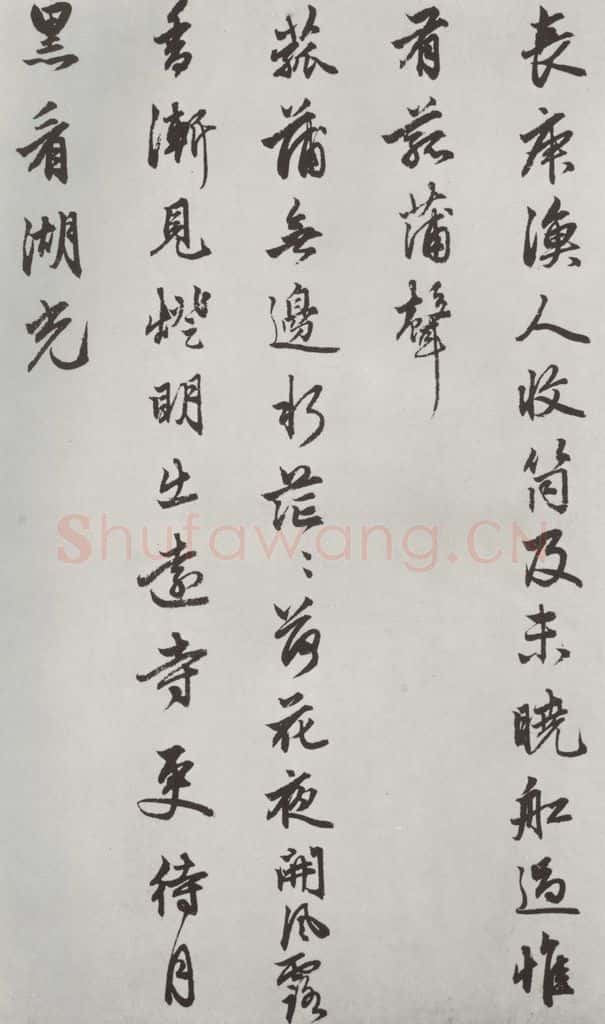 長庚漁人收筒及未曉舡過惟
有菰蒲聲
菰蒲無邊水茫〻荷花夜開風露
香漸見燈明出遠寺更待月
黑看湖光
Shufawang.CN